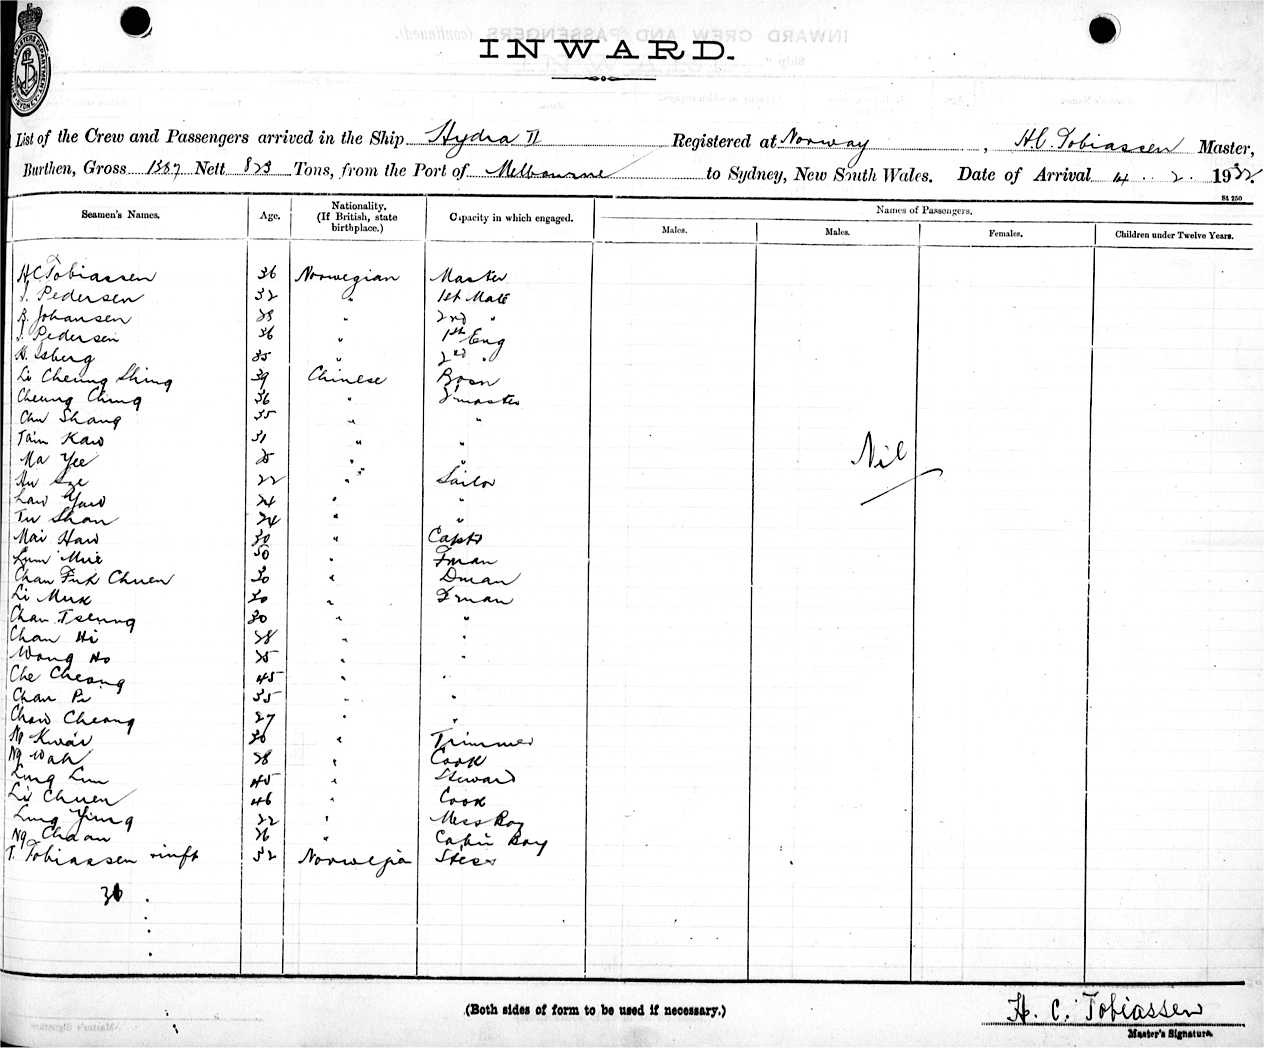 INWARD.
List of the Crew and Passengers arrived in the Ship Hydra II Registered at Norway, H.C. Tobiassen Master,
Burthen, Gross 1357 Nett 823 Tons, from the Port of Melbourne to Sydney, New South Wales. Date of Arrival 14. 2. 1932.
St 250
Seamen's Names. Age. Nationality. (If British, state birthplace.) Capacity in which engaged. Names of Passengers.
Males. Males. Females. Children under Twelve Years.
H C Tobiassen 36 Norwegian Master
J. Pedersen 32 " 1st Mate
B. Johansen 28 " 2nd "
J. Pedersen 36 " 1st Eng
H. Isberg 35 " 2nd "
Li Cheung Shing 39 Chinese Bosn
Cheung Ching 36 " Q'master
Chu Shang 35 " "
Tam Kaw 31 " "
Ma Yee 25 " "
Au Sze 22 " Sailor
Law Yaw 24 " "
Tu Shan 24 " "
Mai Haw 30 "
Lum Mui 50 " Fman
Chan Fuk Chuen 30 " Dman
Li Muk 30 " Fman
Chan Tseung 30 " "
Chan Hi 28 " "
Wong Ho 25 " "
Che Cheong 45 " "
Chan Pi 35 " "
Chow Cheong 27 " "
Ng Kwai 30 " Trimmer
Ng Wah 28 " Cook
Lung Lun 45 " Steward
Li Chuen 46 " Cook
Lung Ying 22 " Mess Boy
Ng Chaon 26 " Cabin Boy
T. Tobiassen 32 Norwegian Stess
Nil
30
(Both sides of form to be used if necessary.)
H. C. Tobiassen
Master's Signature.